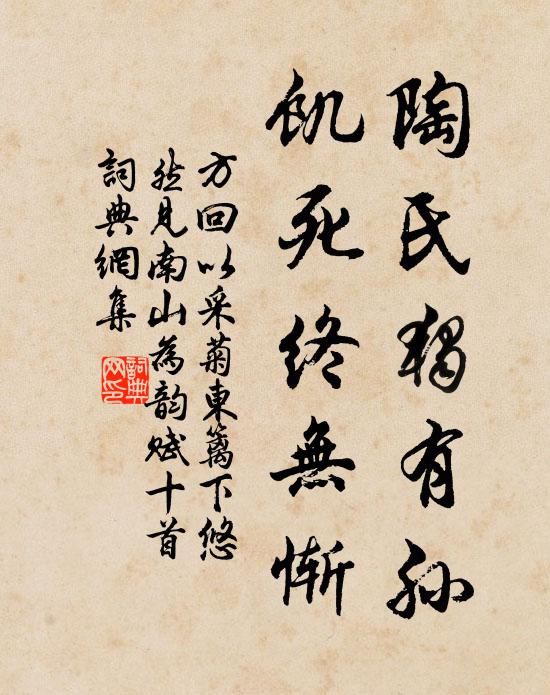 陶氏獨有孫
飢死終無慚
方回以采菊東篱下悠
然見南山為韵賦十首
詞典網集
詞典网印